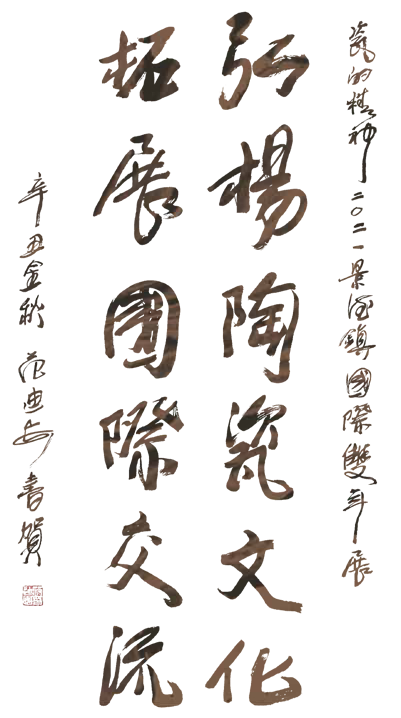 瓷的精神二〇二一景德鎮國際雙年展
弘楊陶瓷文化
拓展國際交流
辛丑金秋 范迪安書賀